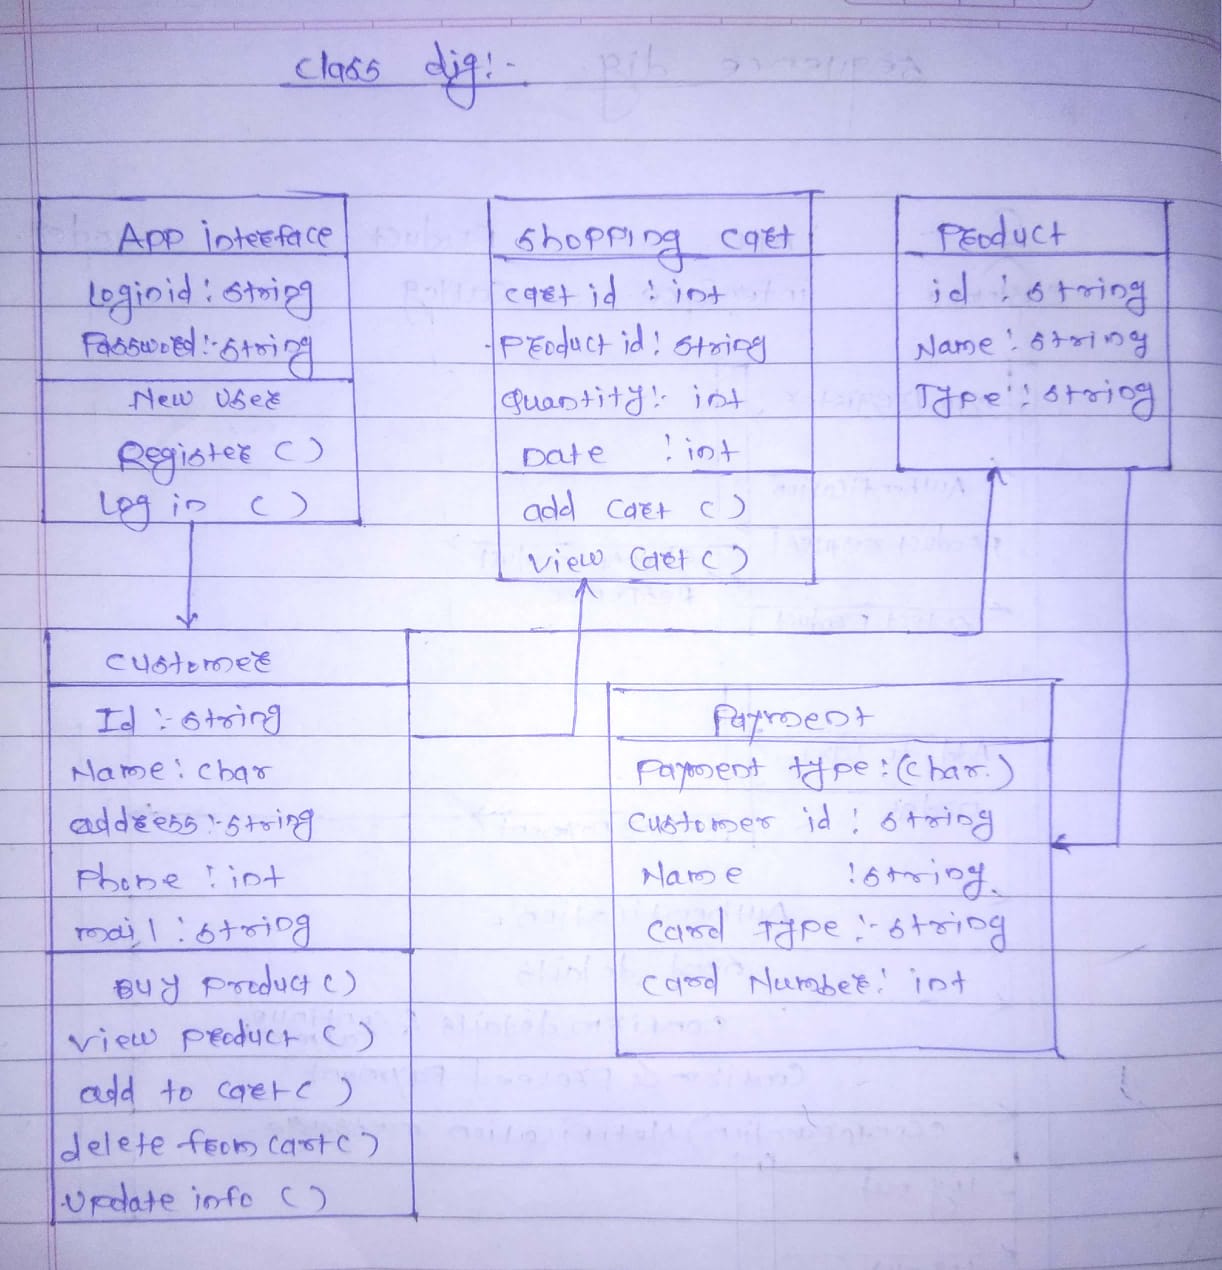 Class dig:-
App interface
loginid : string
Password :- string
New User
Register ( )
Log in ( )
Shopping cart
cart id : int
Product id : string
Quantity :- int
Date : int
add Cart ( )
view Cart ( )
Product
id : string
Name : string
Type : string
Customer
Id :- string
Name : char
address :- string
Phone : int
mail : string
Buy Product ( )
view product ( )
add to cart ( )
delete from cart ( )
Update info ( )
Payment
Payment type : (char.)
Customer id : string
Name : string
Card Type :- string
Card Number : int